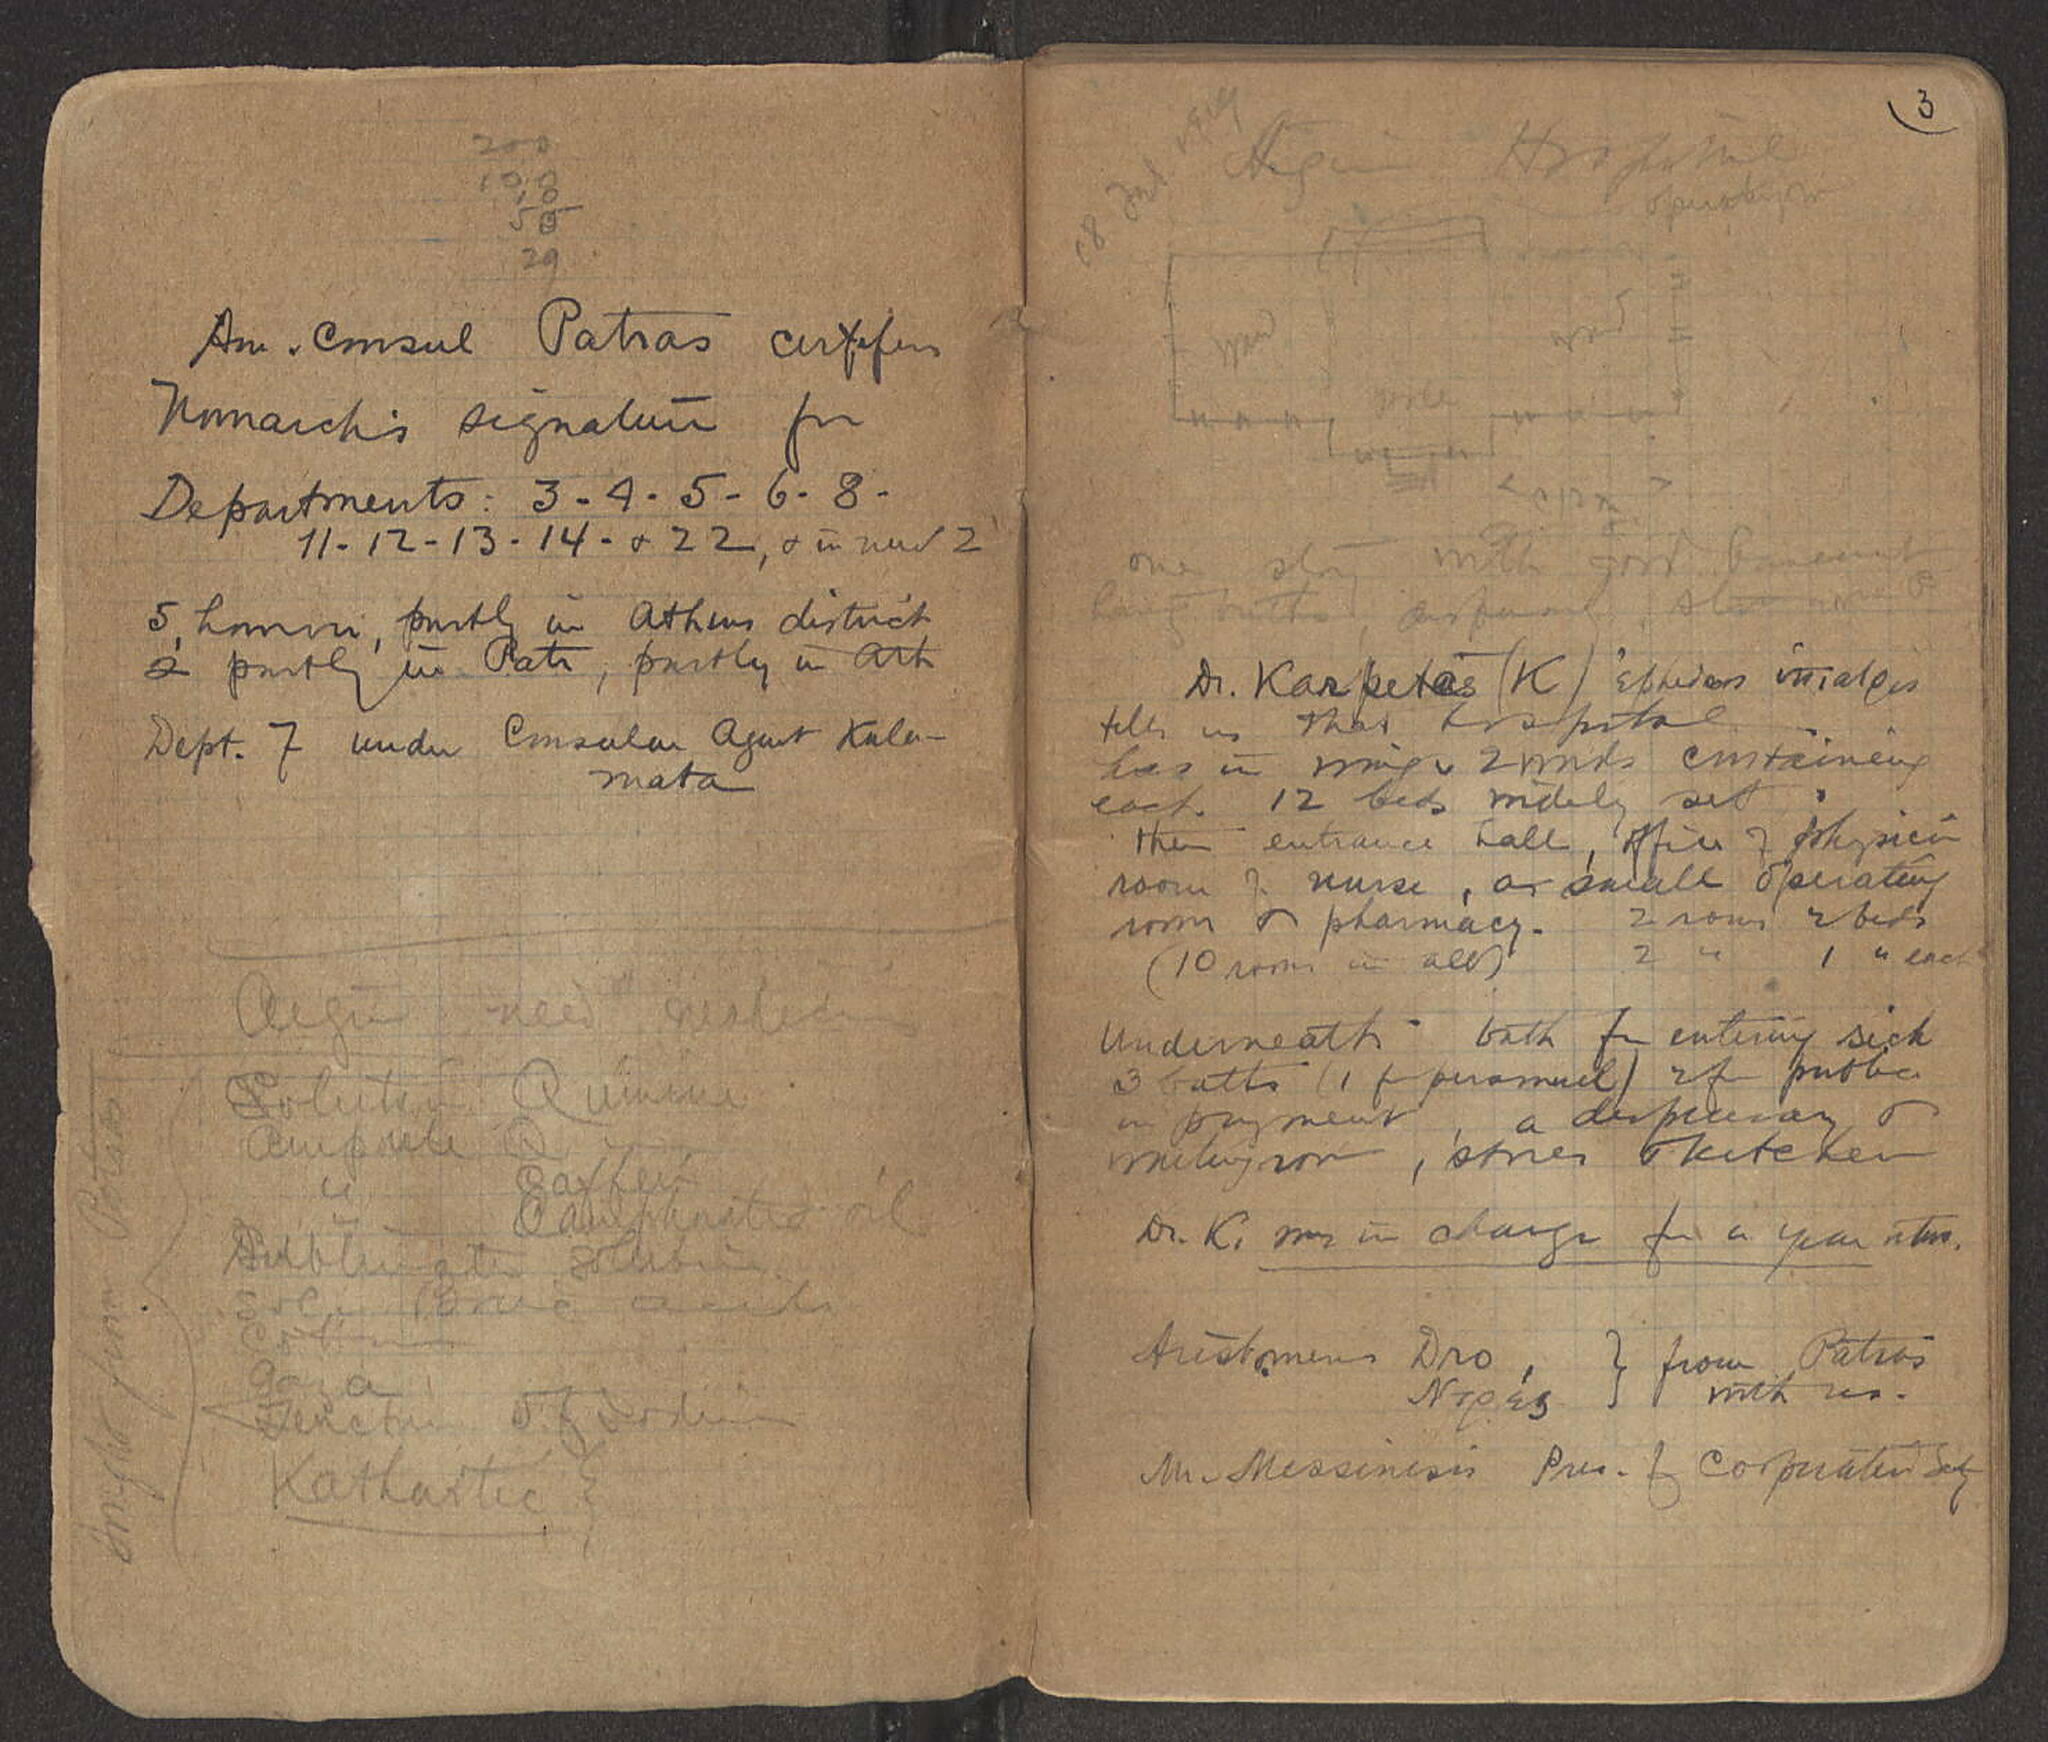 200
100
10
50
29
Am. Consul Patras certifies
Nomarch's signature for
Departments: 3-4-5-6-8-
11-12-13-14- & 22, &
5, partly in Athens district
& partly in Patr, partly in Ath
Dept. 7 under Consular Agent Kala-
mata
Aegin need
Solution Quinine
Ampoule Q
" Caffein
" Camphorated oil
Sublimate solution
Sol. Boric acid
Cotton
Gaza
Tincture of Iodine
Kathartic
brought from Patras
3
18 1919
Aegin Hospital
operating rm
ward ward
one story with good basement
having baths, dispensary,
Dr. Karpetas (K)
tells us that hospital
has in wings 2 wards containing
each 12 beds widely set
then entrance hall, office of physician
room of nurse, a small operating
room & pharmacy. 2 rooms 2 beds
(10 rooms in all) 2 " 1 " each
Underneath bath for entering sick
3 baths (1 for personnel) 2 for public
on payment, a dispensary &
waiting room, stores & kitchen
Dr. K. was in charge for a year
Aristomenes Dro, } from Patras
with us.
Mr. Messinesis Pres. of